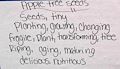 Apple tree seeds
Seeds, tiny
Planting, growing, changing
Fragile, plant, transforming, tree
Riping, aging, maturing
delicious, nutritious